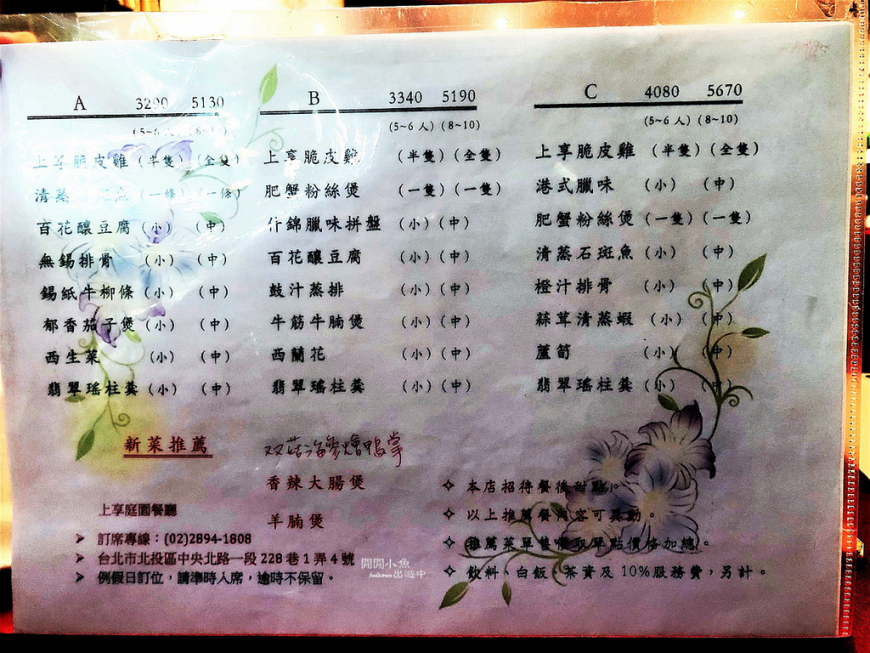 A 3290 5130
(5~6 人) (8~10)
上享脆皮雞 (半隻) (全隻)
清蒸 魚 (一條) (一條)
百花釀豆腐 (小) (中)
無錫排骨 (小) (中)
錫紙牛柳條 (小) (中)
郁香茄子煲 (小) (中)
西生菜 (小) (中)
翡翠瑤柱羹 (小) (中)
B 3340 5190
(5~6 人) (8~10)
上享脆皮雞 (半隻) (全隻)
肥蟹粉絲煲 (一隻) (一隻)
什錦臘味拼盤 (小) (中)
百花釀豆腐 (小) (中)
鼓汁蒸排 (小) (中)
牛筋牛腩煲 (小) (中)
西蘭花 (小) (中)
翡翠瑤柱羹 (小) (中)
C 4080 5670
(5~6 人) (8~10)
上享脆皮雞 (半隻) (全隻)
港式臘味 (小) (中)
肥蟹粉絲煲 (一隻) (一隻)
清蒸石斑魚 (小) (中)
橙汁排骨 (小) (中)
蒜茸清蒸蝦 (小) (中)
蘆筍 (小) (中)
翡翠瑤柱羹 (小) (中)
新菜推薦
双菇海參燴鴨掌
香辣大腸煲
羊腩煲
上享庭園餐廳
訂席專線：(02)2894-1808
台北市北投區中央北路一段 228 巷 1 弄 4 號
例假日訂位，請準時入席，逾時不保留。
本店招待餐後甜點。
以上推薦餐內容可異動。
推薦菜單售 取單點價格加總。
飲料、白飯、茶資及 10%服務費，另計。
開開小魚
出遊中